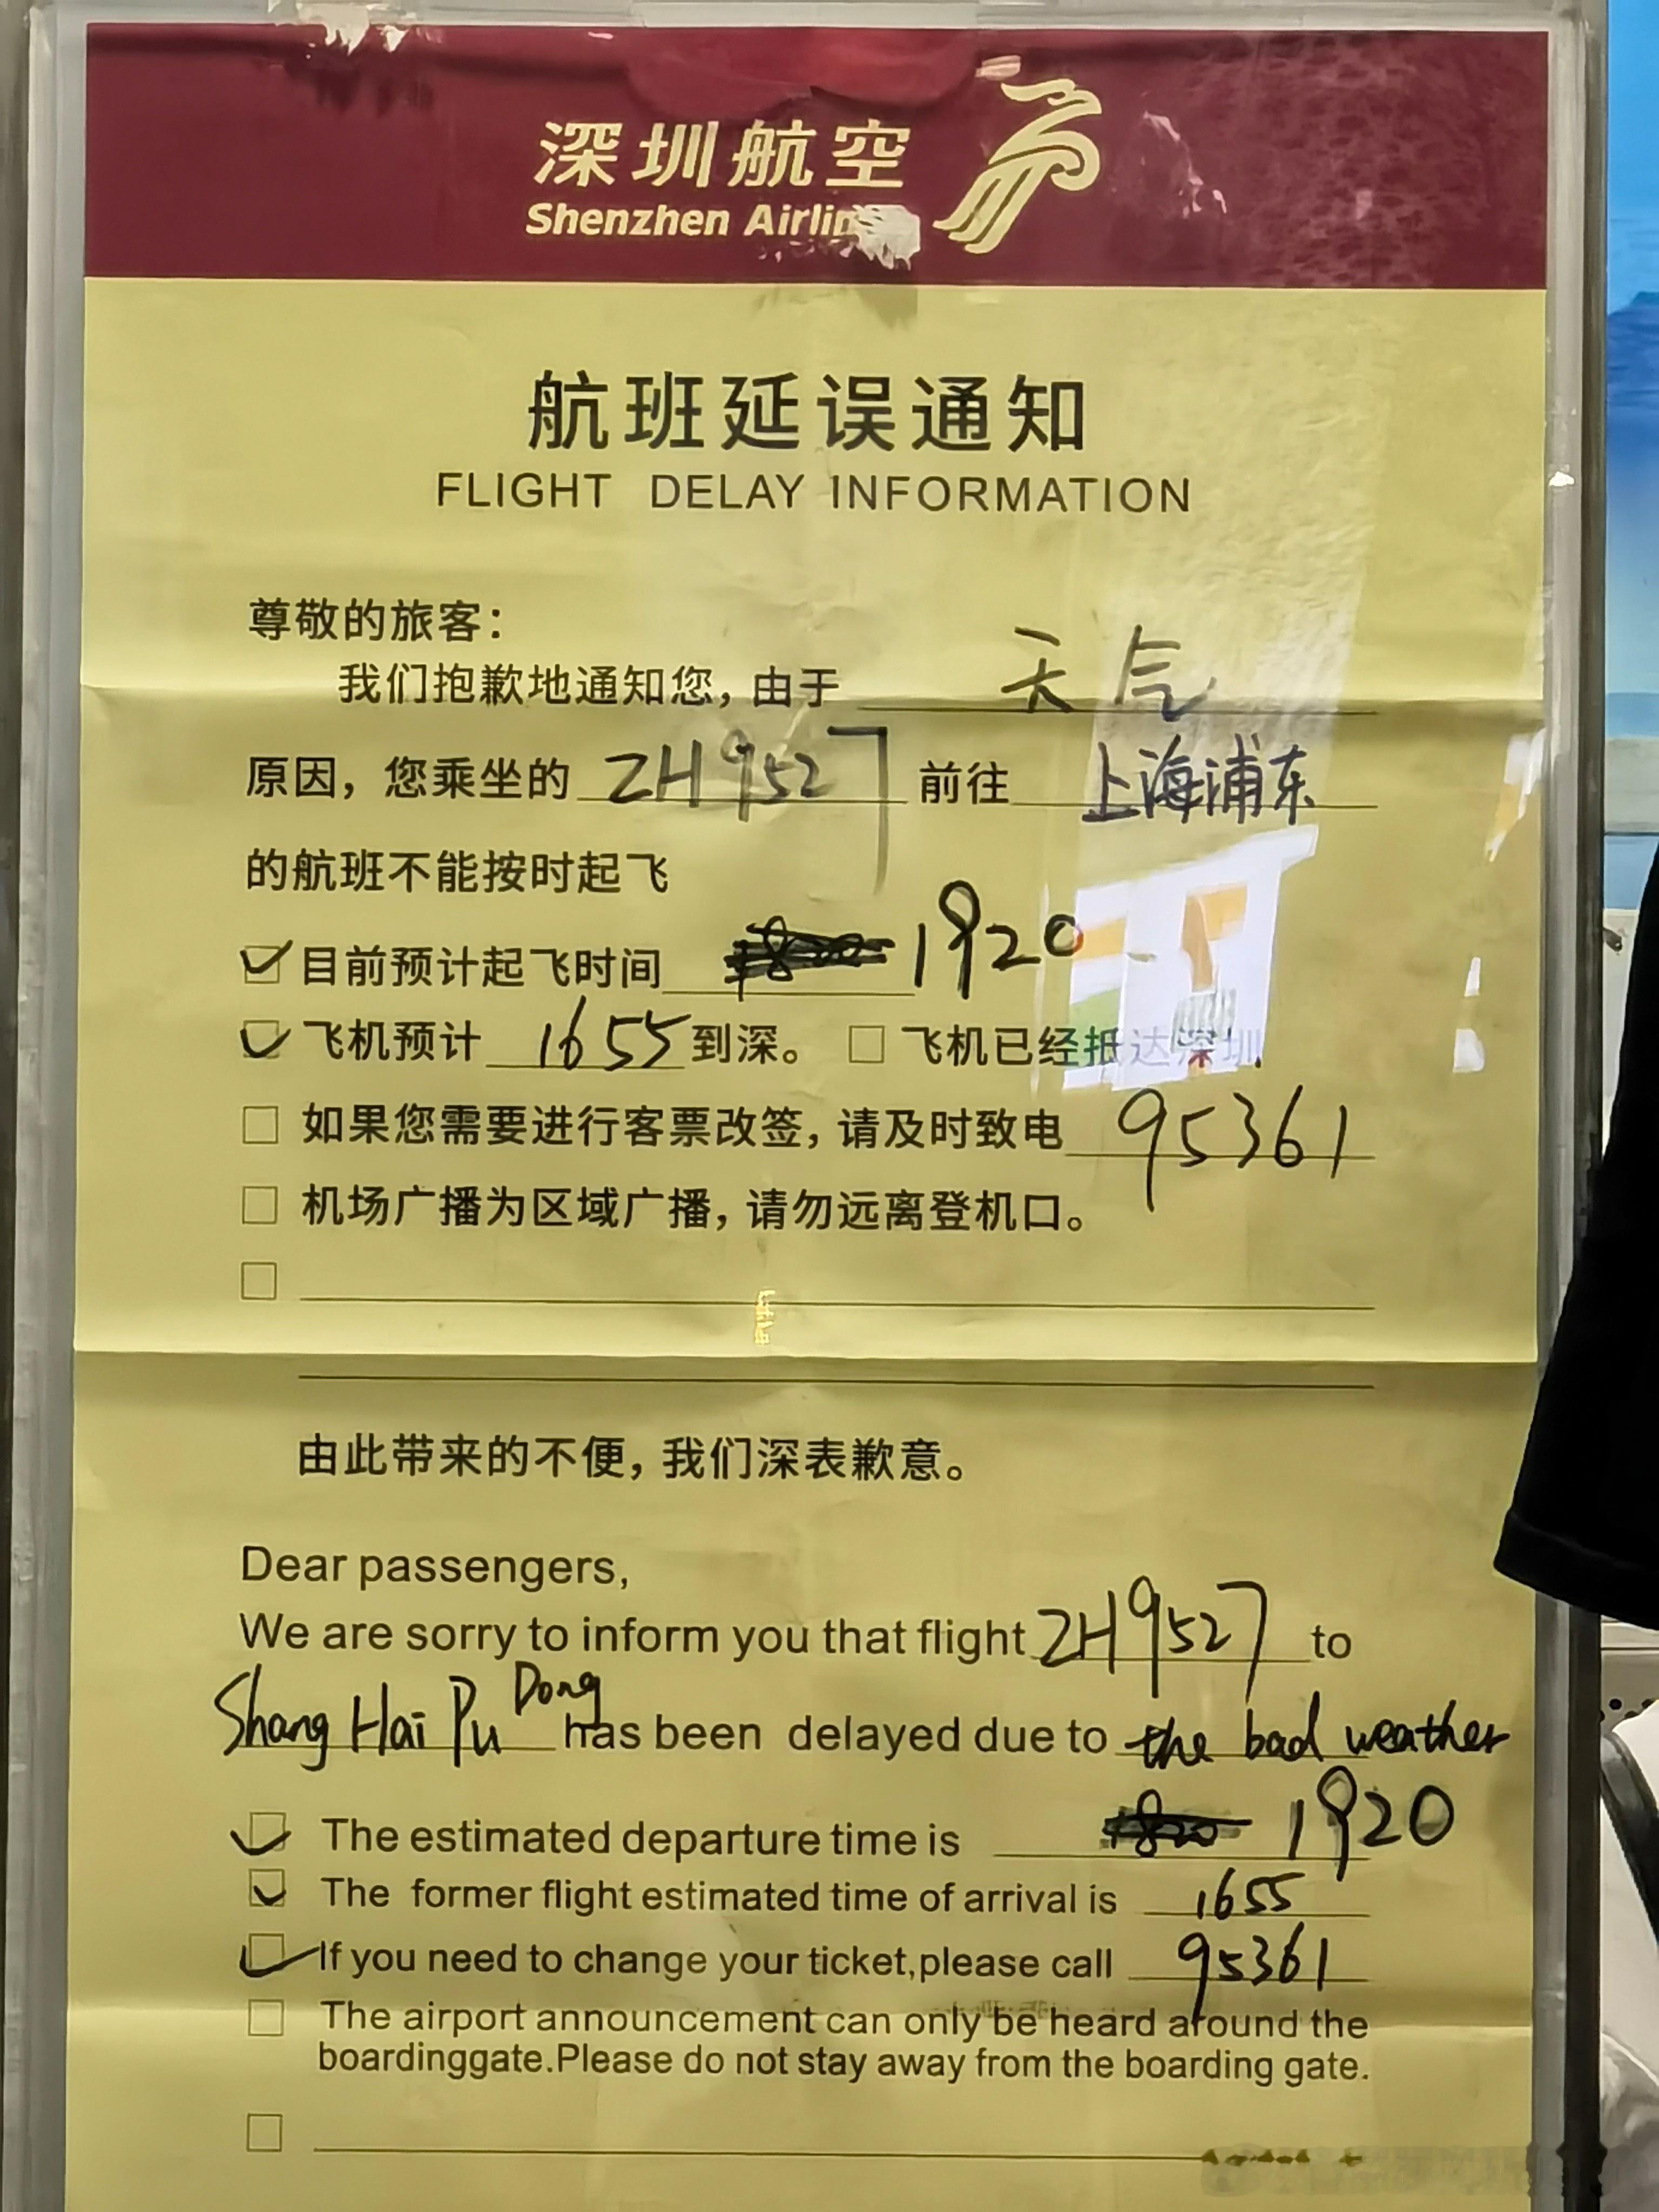 深圳航空
Shenzhen Airlin
航班延误通知
FLIGHT DELAY INFORMATION
尊敬的旅客：
我们抱歉地通知您，由于 天气
原因，您乘坐的 ZH9527 前往 上海浦东
的航班不能按时起飞
目前预计起飞时间 1820 1920
飞机预计 1655 到深。 飞机已经抵达深圳
如果您需要进行客票改签，请及时致电 95361
机场广播为区域广播，请勿远离登机口。
由此带来的不便，我们深表歉意。
Dear passengers,
We are sorry to inform you that flight ZH9527 to
Shang Hai Pu Dong has been delayed due to the bad weather
The estimated departure time is 1820 1920
The former flight estimated time of arrival is 1655
If you need to change your ticket,please call 95361
The airport announcement can only be heard around the
boardinggate.Please do not stay away from the boarding gate.